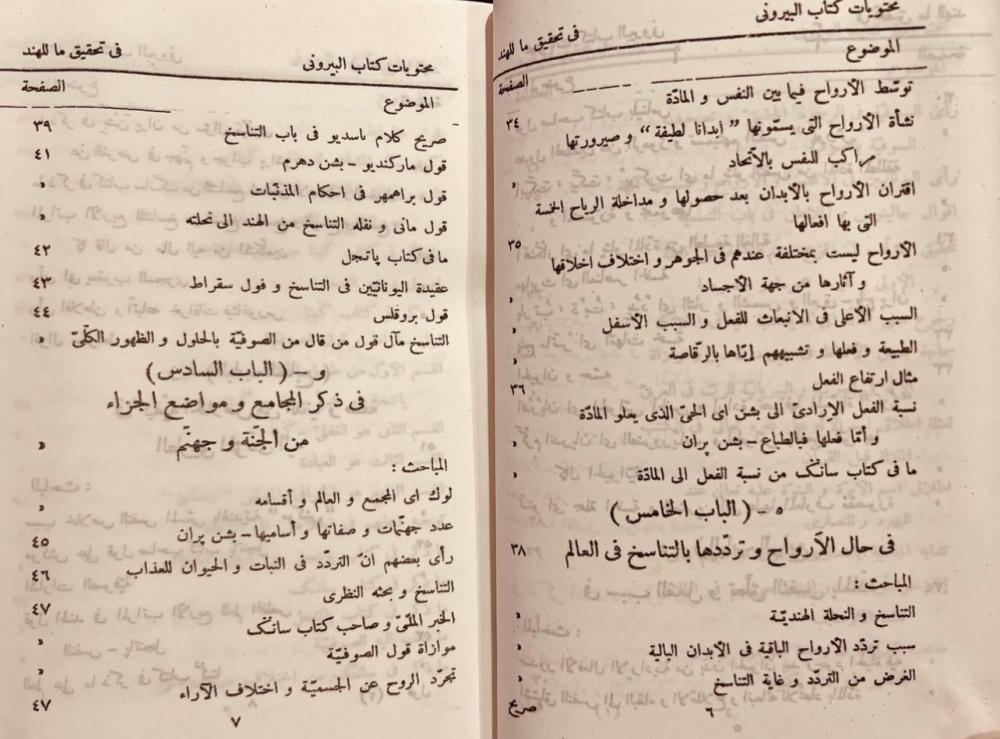 محتويات كتاب البيرونى
فى تحقيق ما للهند
الموضوع
الصفحة
توسّط الأرواح فيما بين النفس و المادّة
نشأة الأرواح التى يسمّونها ” ابدانا لطيفة “ و صيرورتها ٣٤
مراكب للنفس بالاّتحاد
اقتران الأرواح بالأبدان بعد حصولها و مداخلة الرياح الخمسة
التى بها افعالها
الأرواح ليست بمختلفة عندهم فى الجوهر و اختلاف اخلاقها ٣٥
و آثارها من جهة الأجساد
السبب الأعلى فى الانبعاث للفعل و السبب الأسفل
الطبيعة و فعلها و تشبيههم إيّاها بالرقّاصة
مثال ارتفاع الفعل ٣٦
نسبة الفعل الإرادىّ الى بشن اى الحىّ الذى يعلو المادّة
و أمّا فعلها فبالطباع – بشن پران
ما فى كتاب سانگ من نسبة الفعل الى المادّة
ه – ( الباب الخامس )
فى حال الأرواح و تردّدها بالتناسخ فى العالم ٣٨
المباحث :
التناسخ و النحلة الهنديّة
سبب تردّد الأرواح الباقية فى الأبدان البالية
الغرض من التردّد و غاية التناسخ
٦
صريح
محتويات كتاب البيرونى
فى تحقيق ما للهند
الموضوع
الصفحة
صريح كلام باسديو فى باب التناسخ ٣٩
قول ماركنديو – بشن دهرم ٤١
قول براهمهر فى احكام المذنّبات
قول مانى و نقله التناسخ من الهند الى نحلته
ما فى كتاب پاتنجل ٤٢
عقيدة اليونانيّين فى التناسخ و قول سقراط ٤٣
قول بروقلس ٤٤
التناسخ مآل قول من قال من الصوفيّة بالحلول و الظهور الكلّىّ
و – ( الباب السادس )
فى ذكر المجامع و مواضع الجزاء
من الجنّة و جهنّم
المباحث :
لوك اى المجمع و العالم و أقسامه
عدد جهنّمات و صفاتها و أساميها – بشن پران ٤٥
رأى بعضهم انّ التردّد فى النبات و الحيوان للعذاب
التناسخ و بحثه النظرى ٤٦
الخبر الملّىّ و صاحب كتاب سانگ ٤٧
موازاة قول الصوفيّة
تجرّد الروح عن الجسميّة و اختلاف الآراء ٤٧
٧